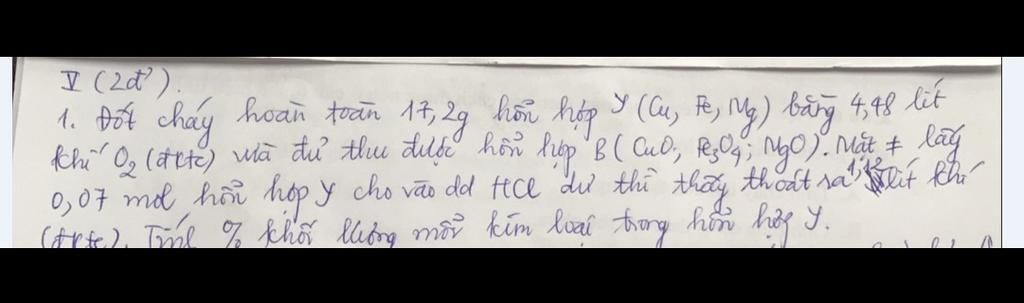 V (2đ).
1. Đốt cháy hoàn toàn 17,2g hỗn hợp Y (Cu, Fe, Mg) bằng 4,48 lít
khí O2 (đktc) vừa đủ thu được hỗn hợp B (CuO; Fe3O4; MgO). Mặt ≠ lấy
0,07 mol hỗn hợp Y cho vào dd HCl dư thì thấy thoát ra 1,12 lít khí
(đktc). Tính % khối lượng mỗi kim loại trong hỗn hợp Y.